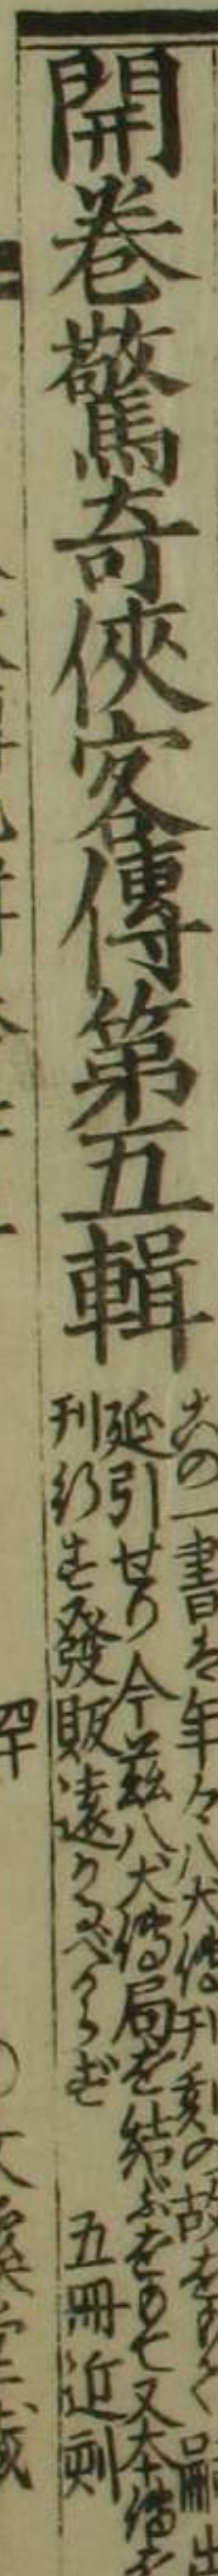 開巻驚奇俠客傳第五輯
この一書は年々八犬傳刊刻の故をもて嗣出
延引せり今茲八犬傳局を結ぶをもて又本傳を
刊行す發販遠かるべからず 五冊近刻